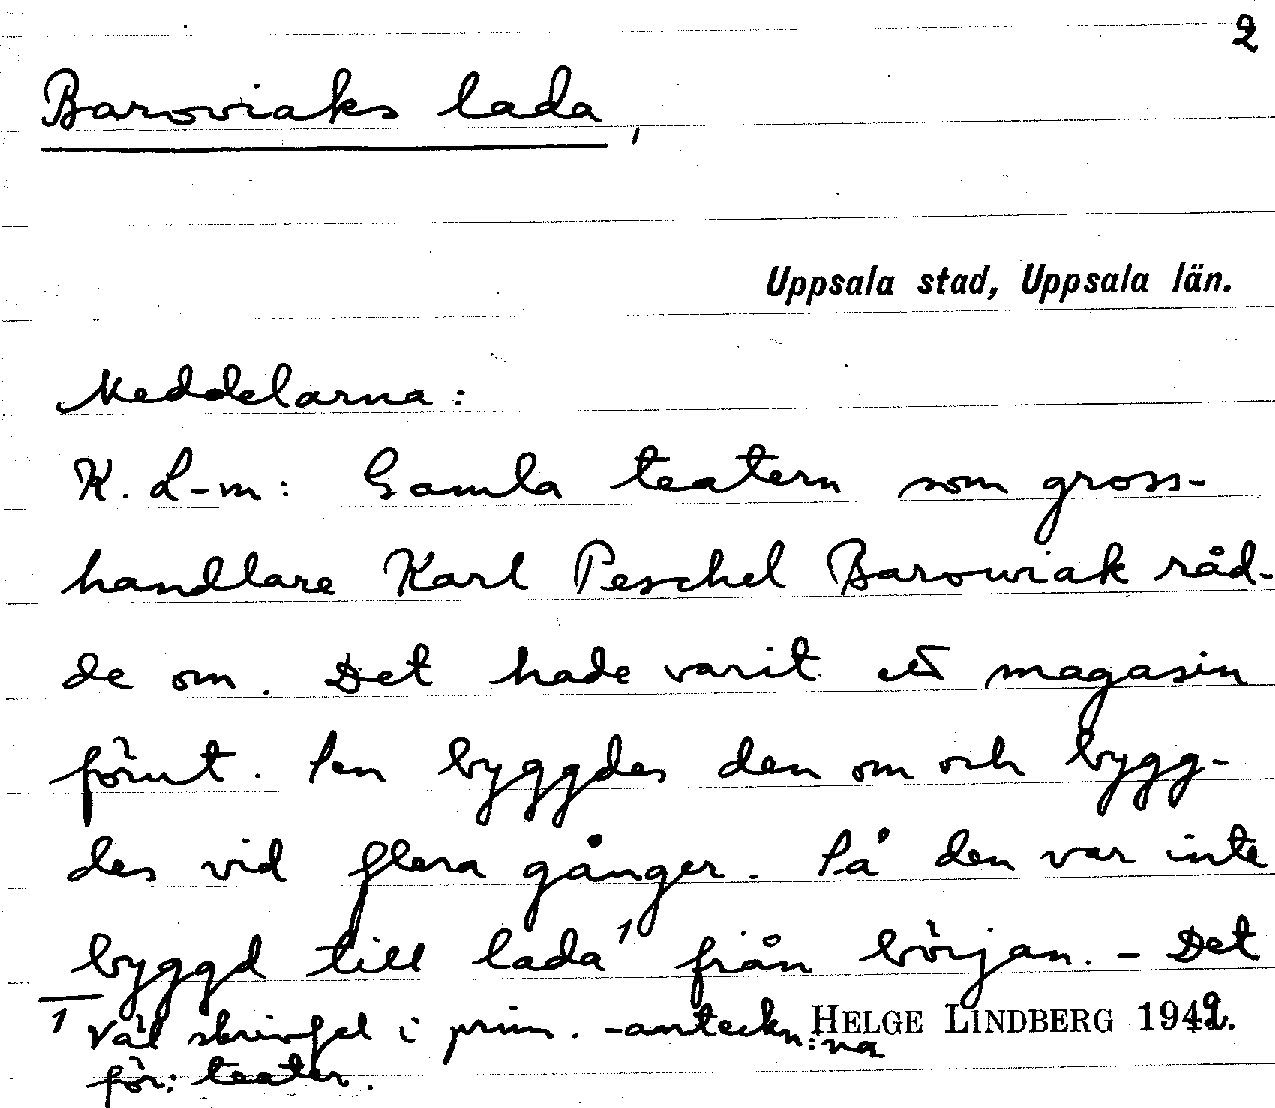 2
Baroviaks lada,
Uppsala stad, Uppsala län.
Meddelarna:
K. L-m: Gamla teatern som gross-
handlare Karl Peschel Barowiak råd-
de om. Det hade varit ett magasin
förut. Sen byggdes den om och bygg-
des vid flera gånger. Så den var inte
byggd till lada¹ från början. - Det
1 Väl skrivfel i prim.-anteckn:na
för: teater.
HELGE LINDBERG 1942.